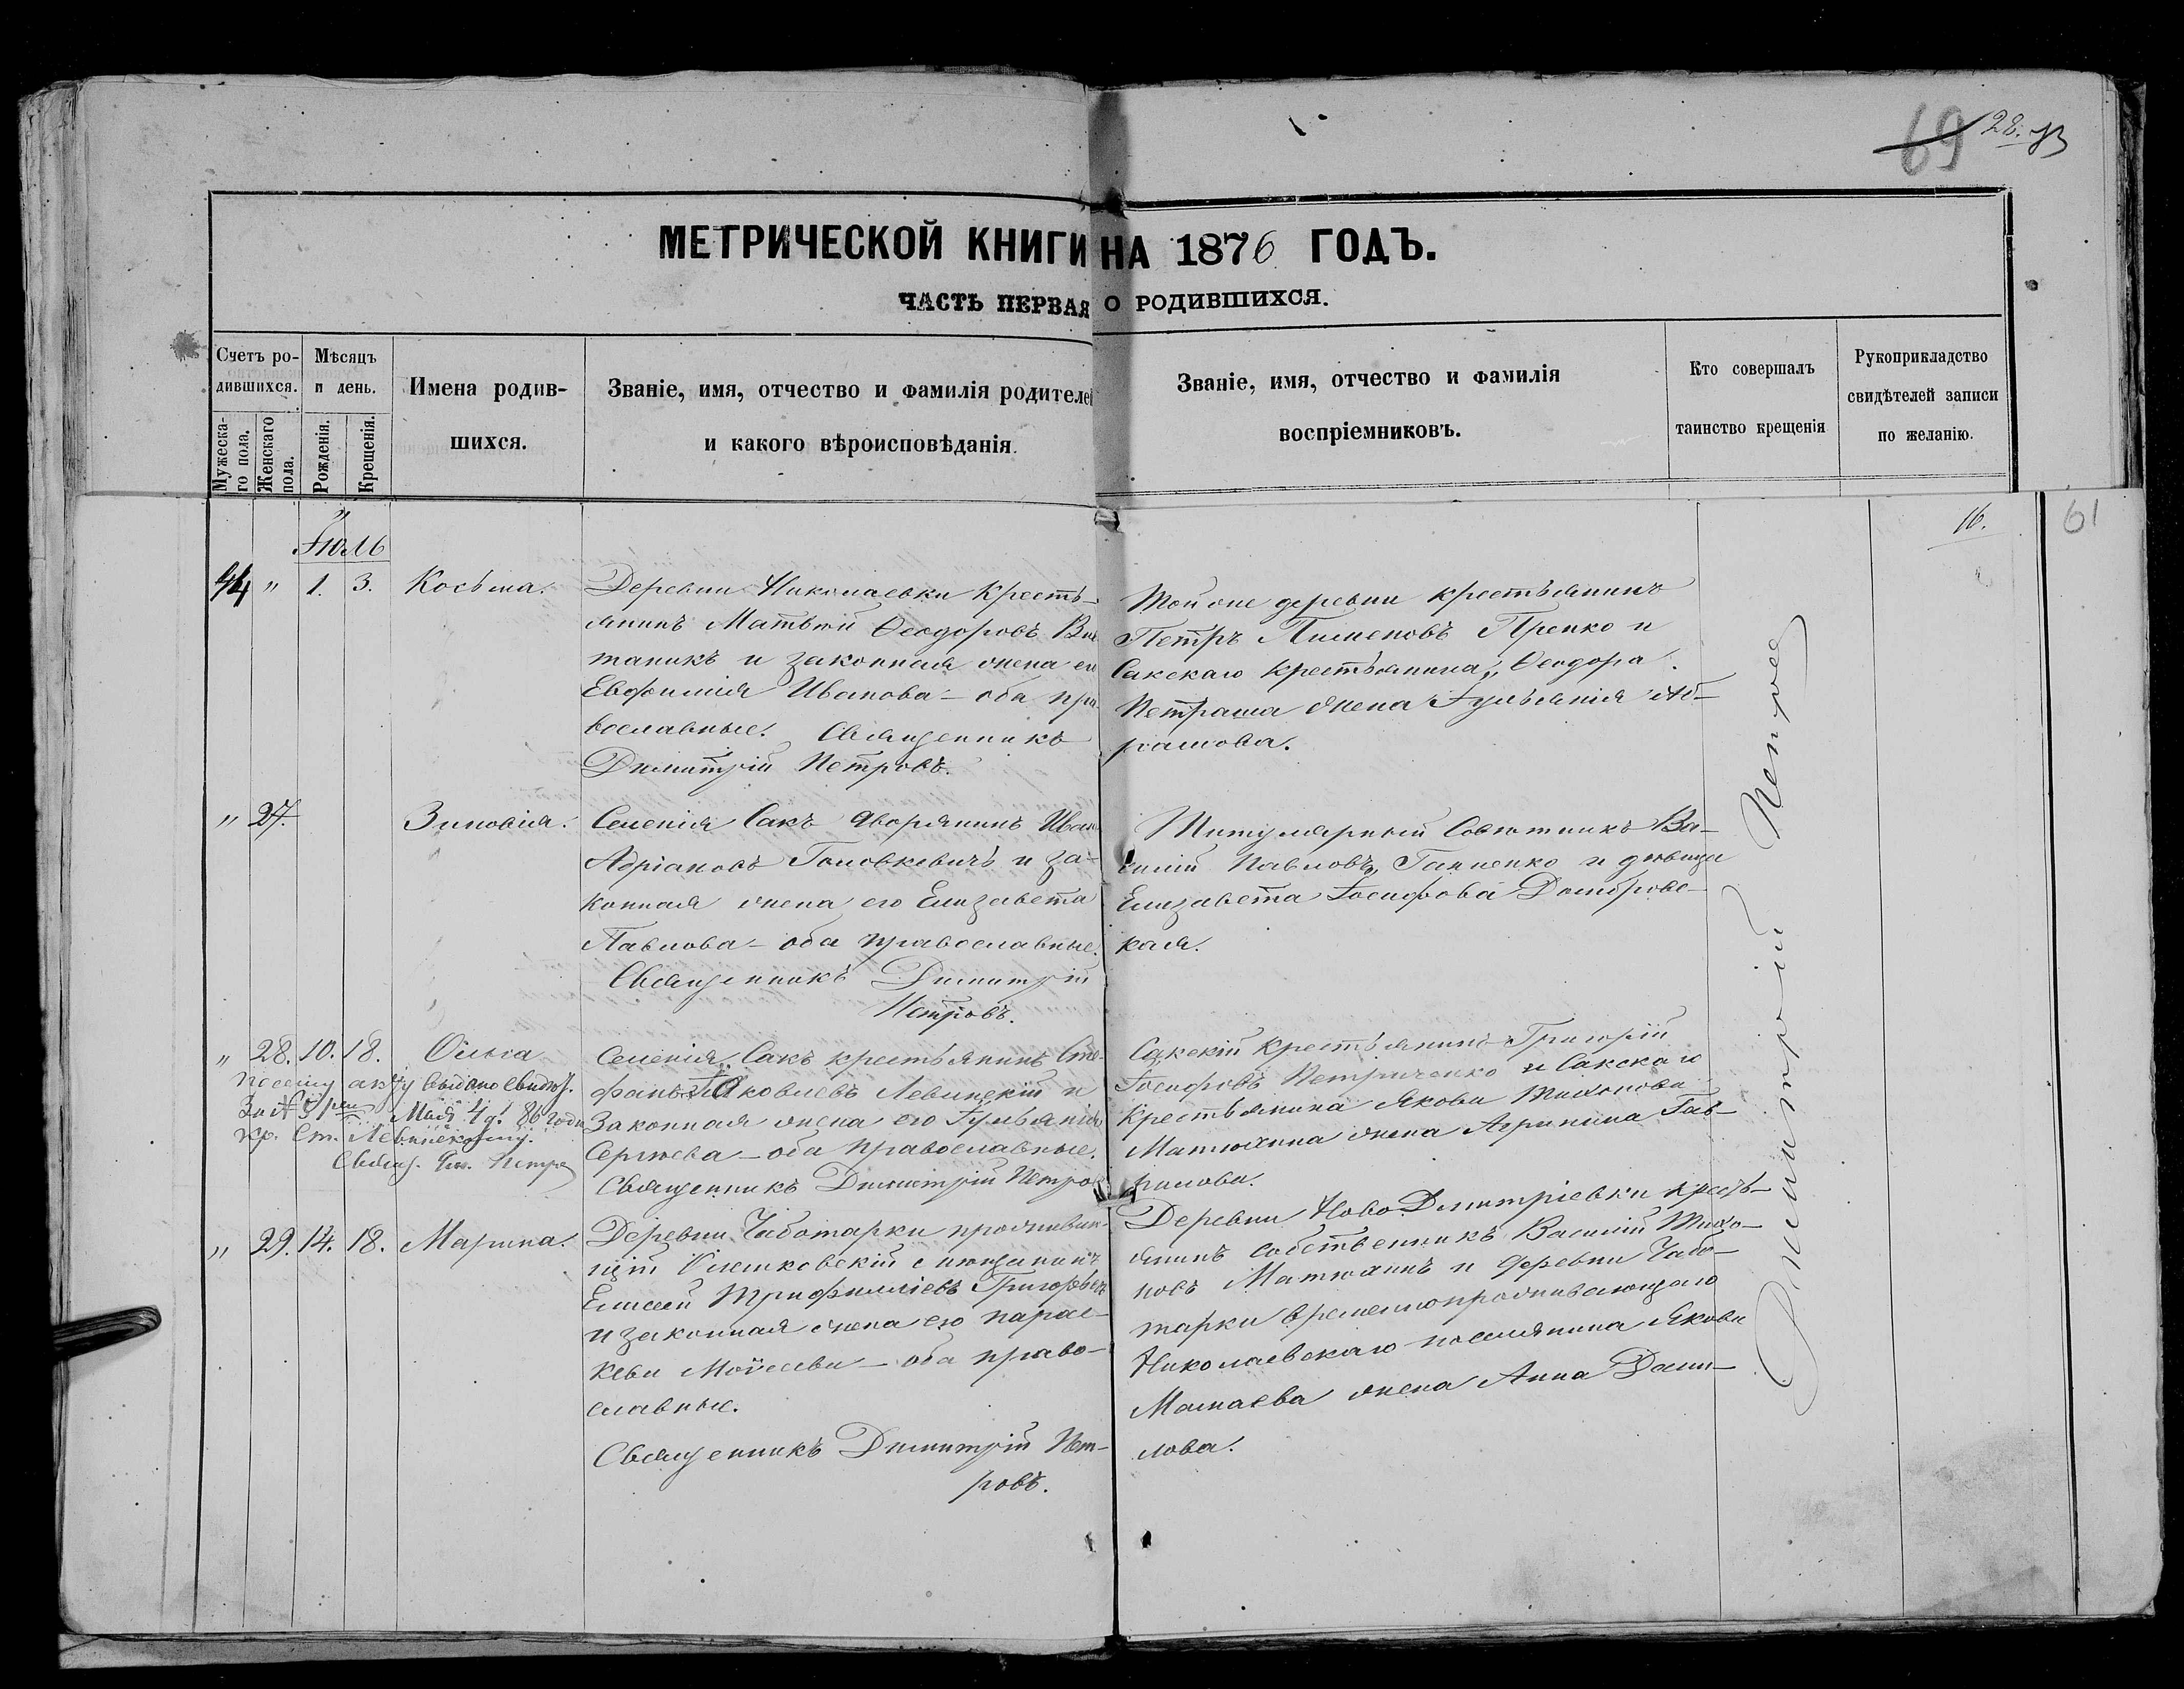 69 28.
МЕТРИЧЕСКОЙ КНИГИ НА 1876 ГОДЪ.
ЧАСТЬ ПЕРВАЯ О РОДИВШИХСЯ.
Счетъ ро-
дившихся.
Мужеска-
го пола.
Женскаго
пола.
Мѣсяцъ
и день.
Рожденія.
Крещенія.
Имена родив-
шихся.
Званіе, имя, отчество и фамилія родителей
и какого вѣроисповѣданія.
Званіе, имя, отчество и фамилія
воспріемниковъ.
Кто совершалъ
таинство крещенія
Рукоприкладство
свидѣтелей записи
по желанію.
16.
61
Іюль
44 " 1. 3. Косьма.
Деревни Николаевки Кресть-
янинъ Матѳей Ѳеодоровъ
таникъ и законная жена его
Евфимія Иванова - оба пра
вославные. Священникъ
Димитрій Петровъ.
Той же деревни крестьянинъ
Петръ Пименовъ Препко и
Сакскаго крестьянина Ѳеодора
Петраша жена Іуліанія Аб-
рамова.
" 27. Зиновія.
Селенія Сакъ дворянинъ Иванъ
Адріановъ Головкевичъ и за-
конная жена его Елизавета
Павлова - оба православные.
Священникъ Димитрій
Петровъ.
Титулярный Совѣтникъ Ва-
силій Павловъ Ганненко и дѣвица
Елизавета Іосифова Домбровс-
кая.
" 28. 10. 18. Ольга
По сему акту выдано свидѣт.
За № 5 Мая 4 д. 86 года
кр. Ст. Левинскому.
Свящ. Дим. Петро
Селенія Сакъ крестьянинъ Сте-
фанъ Яковлевъ Левинскій и
Законная жена его Іуліанія
Сергѣева - оба православные.
Священникъ Димитрій Петров
Сакскій Крестьянинъ Григорій
Іосифовъ Петриченко и Сакскаго
Крестьянина Якова Тихонова
Матюхина жена Агрипина Гав-
рилова.
" 29. 14. 18. Марина.
Деревни Чаботарки проживаю-
щій Олешковскій мѣщанинъ
Елисей Трифилліевъ Григорьевъ
и законная жена его Парас-
кева Моисеева - оба право-
славные.
Священникъ Димитрій Пет-
ровъ.
Деревни Ново Дмитріевки кресть-
янинъ собственникъ Василій Тихо-
новъ Матюхинъ и деревни Чабо-
тарки временнопроживающаго
Николаевскаго поселянина Якова
Мамаева жена Анна Дани-
лова.
Димитрій Петров